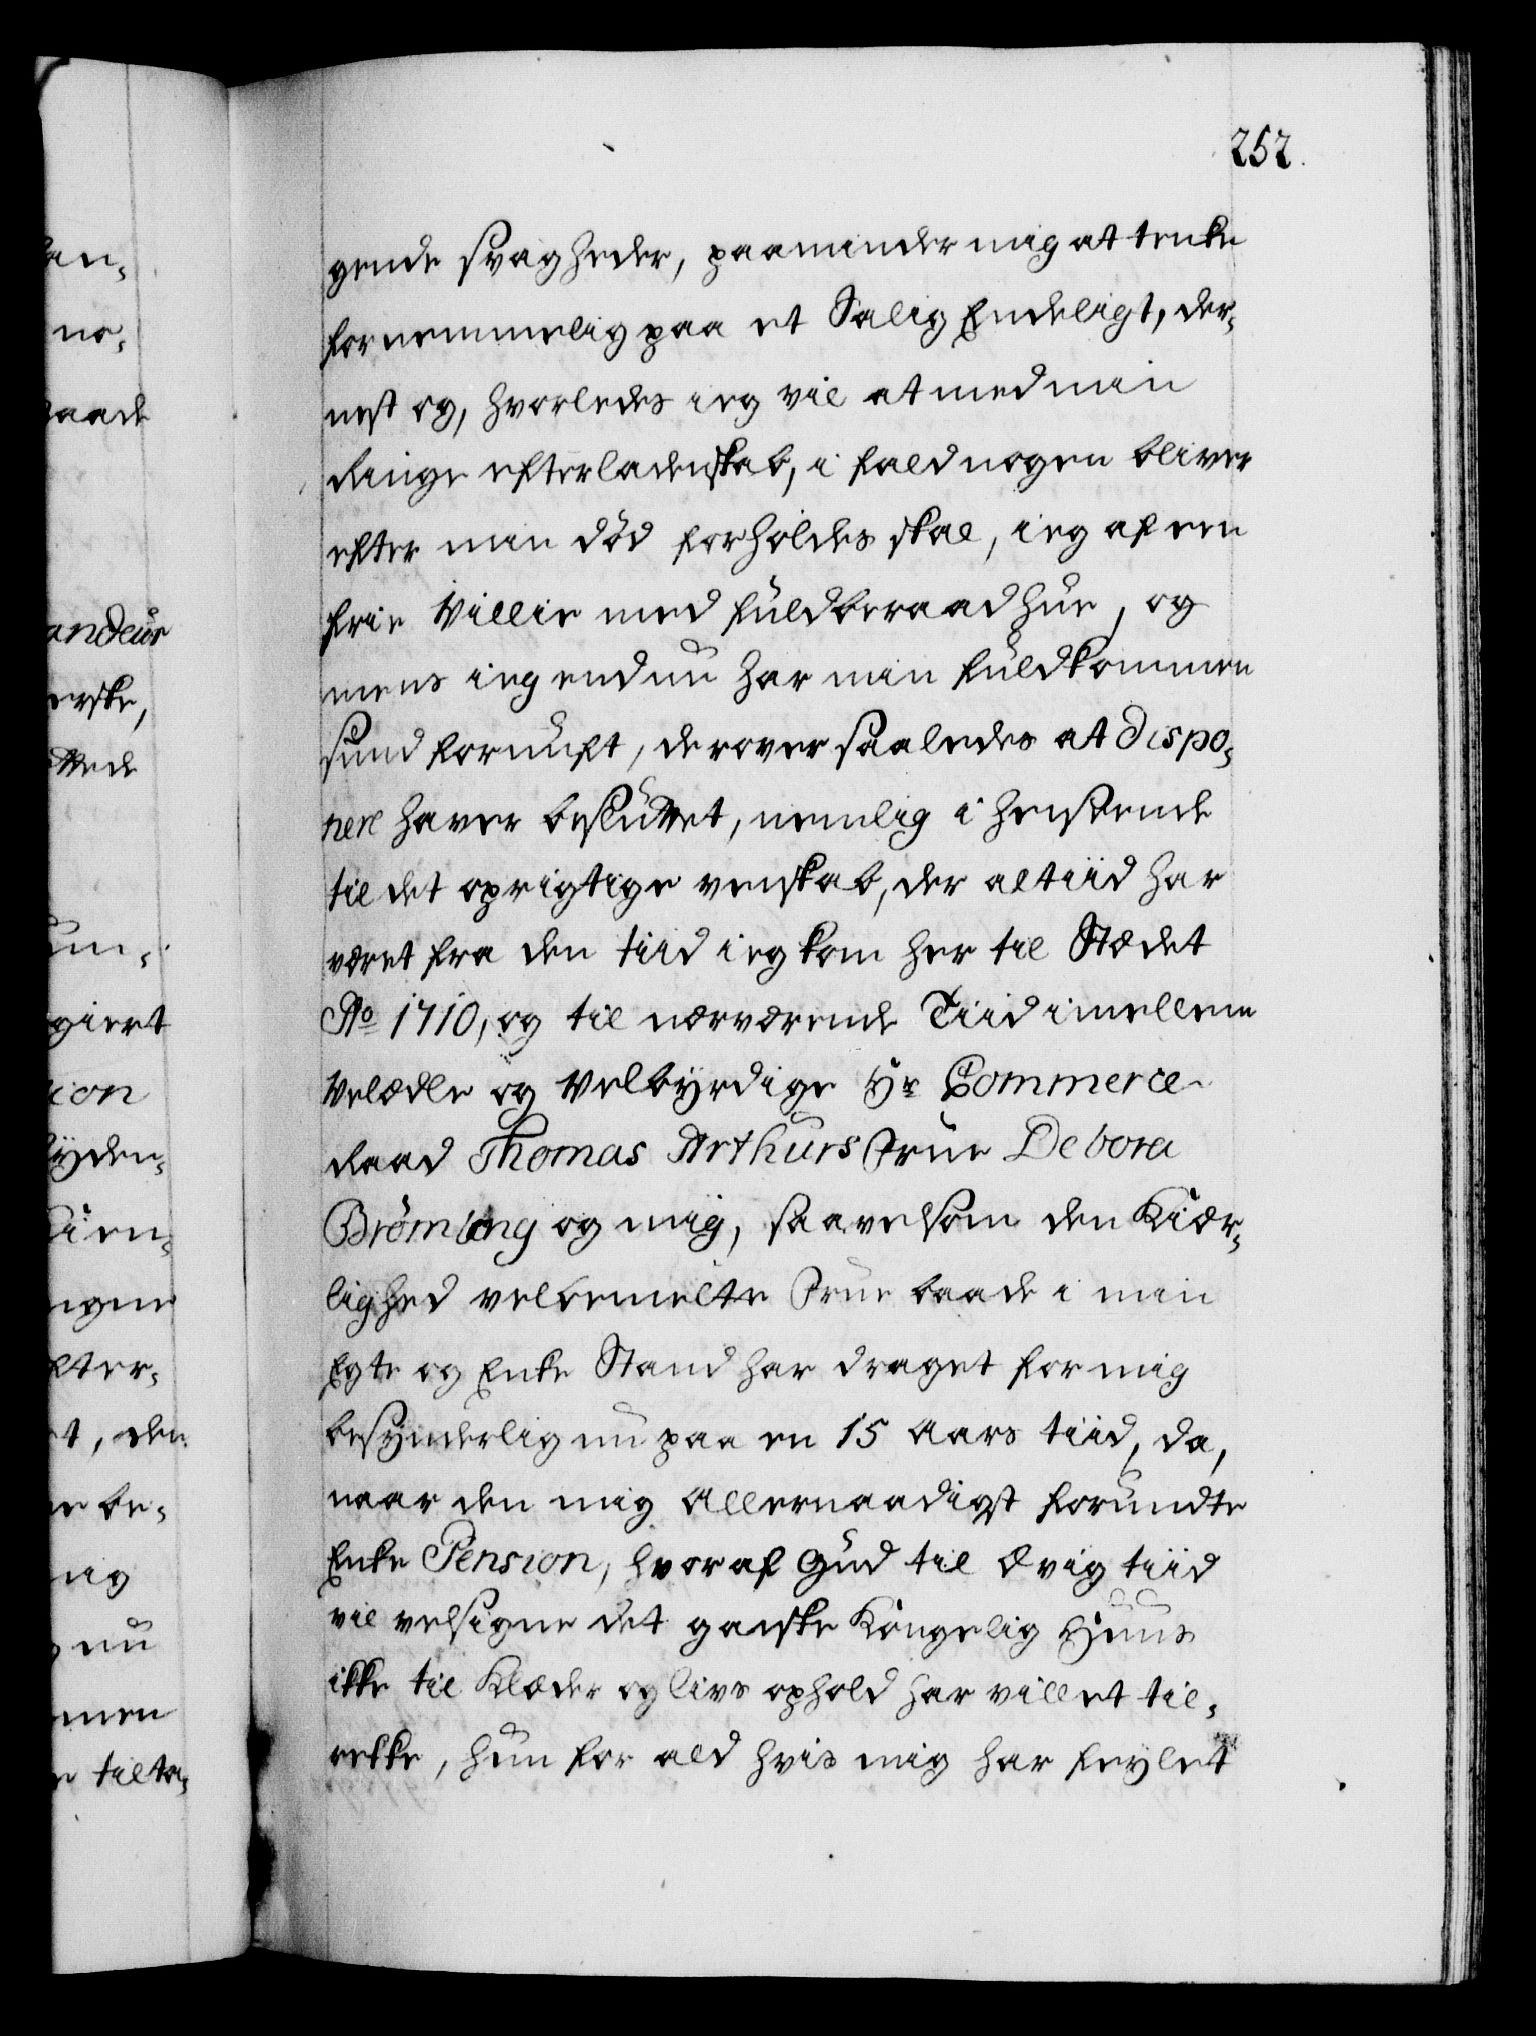 252.
gende svagheder, paaminder mig at tenke
fornemmelig paa et Salig Endeligt, der-
nest og, hvorledes ieg vil at med min
Ringe efterladenskab, i fald nogen bliver
efter min död forholdes skal, ieg af een
frie Villie med fuldberaad hue, og
mens ieg endnu har min fuldkommen
sund fornuft, derover saaledes at dispo-
nere haver besluttet, nemlig i henseende
til det oprigtige venskab, der altiid har
været fra den tiid ieg kom her til Stædet
Ao 1710, og til nærværende Tiid imellem
Velædle og Velbyrdige Hr Commerce
Raad Thomas Arthurs Frue Debora
Brömling og mig, saavelsom den Kiær-
lighed velbemelte Frue baade i min
Egte og Enke Stand har draget for mig
besynderlig nu paa en 15 Aars tiid, da,
naar den mig Allernaadigst forundte
Enke Pension, hvoraf Gud til Ævig tiid
vil velsigne det ganske Kongelig Huus
ikke til Klæder og livs ophold har villet til-
rekke, hun for ald hvis mig har feylet
an-
no-
aade
andeur
erske,
ttede
um-
giert
ion
yden-
ien-
igne
fter-
t, den
e be-
nig
nu
men
e tilta-